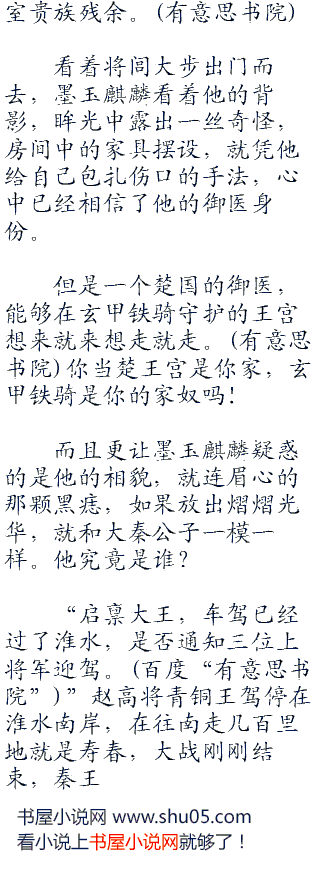 室贵族残余。(有意思书院)
看着将闾大步出门而
去，墨玉麒麟看着他的背
影，眸光中露出一丝奇怪，
房间中的家具摆设，就凭他
给自己包扎伤口的手法，心
中已经相信了他的御医身
份。
但是一个楚国的御医，
能够在玄甲铁骑守护的王宫
想来就来想走就走。(有意思
书院)你当楚王宫是你家，玄
甲铁骑是你的家奴吗！
而且更让墨玉麒麟疑惑
的是他的相貌，就连眉心的
那颗黑痣，如果放出熠熠光
华，就和大秦公子一模一
样。他究竟是谁？
“启禀大王，车驾已经
过了淮水，是否通知三位上
将军迎驾。(百度“有意思书
院”)”赵高将青铜王驾停在
淮水南岸，在往南走几百里
地就是寿春，大战刚刚结
束，秦王
书屋小说网 www.shu05.com
看小说上书屋小说网就够了！